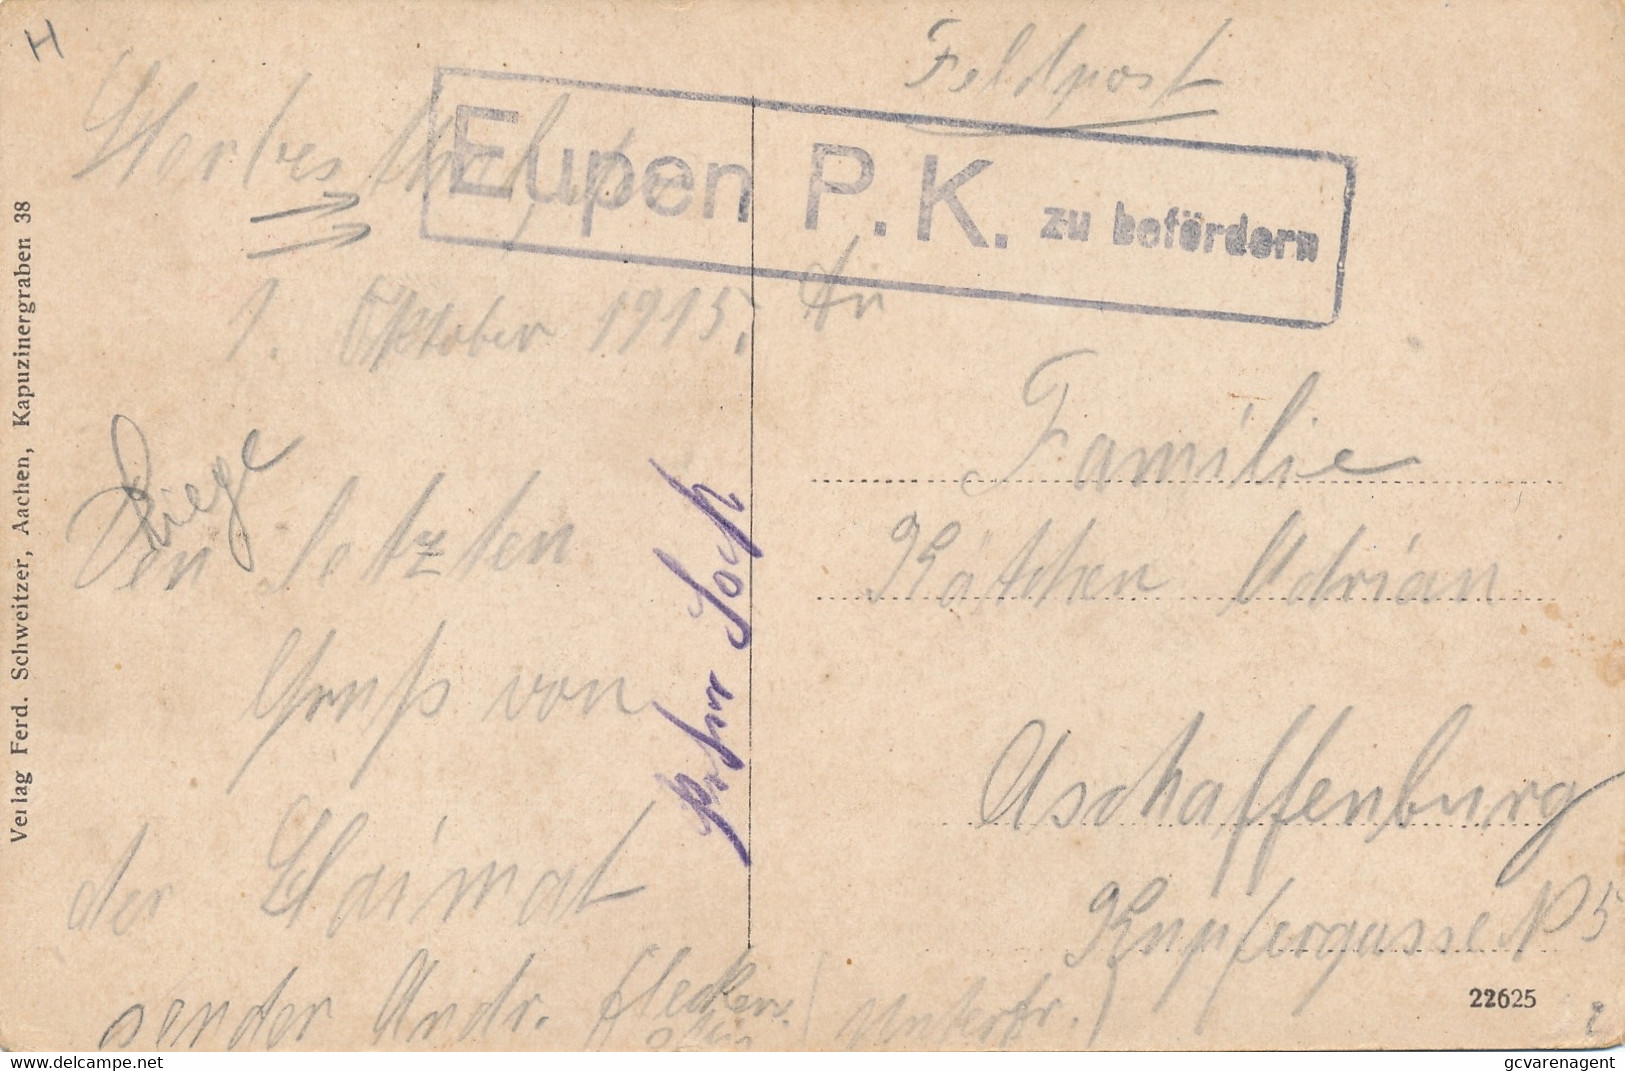 H
Feldpost
Herbesthal, den
Eupen P.K. zu befördern
1. Oktober 1915.
An
Liege
Familie
Den letzten
Kätchen Adrian
Gruß von
Aschaffenburg
der Haimat
Kupfergasse № 5
sender Andr. Flecken
(Unterfr.)
Verlag Ferd. Schweitzer, Aachen, Kapuzinergraben 38
22625
delcampe.net
gcvarenagent